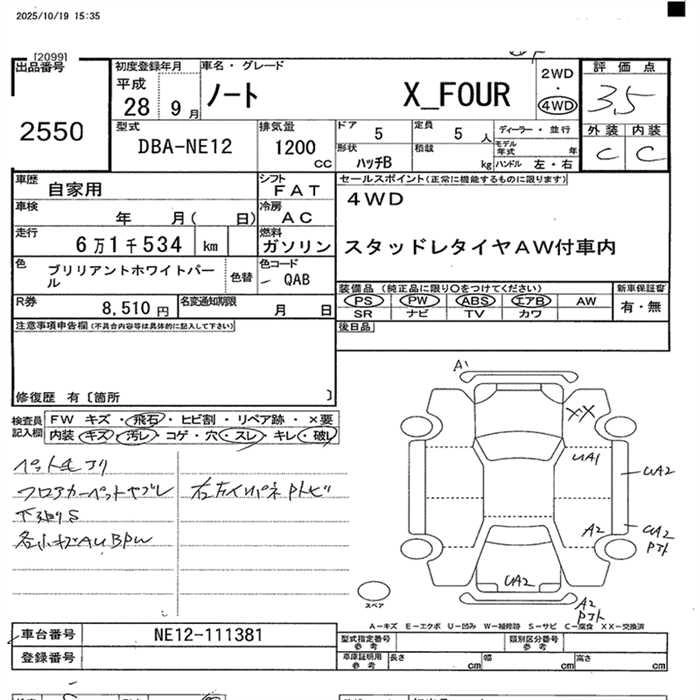 2025/10/19 15:35
[2099]
出品番号
2550
初度登録年月
平成
28 9月
車名・グレード
ノート X_FOUR
2WD
・
4WD
評価点
3.5
外装 内装
C C
型式
DBA-NE12
排気量
1200
CC
ドア 5
定員 5 人
形状 ハッチB
積載 kg
ディーラー・並行
モデル年式 年
ハンドル 左・右
車歴 自家用
シフト FAT
車検 年 月( 日)
冷房 AC
走行 6万1千534 km
燃料 ガソリン
色 ブリリアントホワイトパール
色替
色コード QAB
R券 8,510 円
名変通知期限 月 日
セールスポイント(正常に機能するものに限ります)
4WD
スタッドレタイヤAW付車内
装備品 (純正品に限り○をつけてください)
PS PW ABS エアB AW
SR ナビ TV カワ
新車保証書
有・無
後日品
注意事項申告欄(不具合内容等は具体的に記入して下さい)
修復歴 有〔箇所 〕
検査員記入欄
FW キズ・飛石・ヒビ割・リペア跡・×要
内装 キズ・汚レ・コゲ・穴・スレ・キレ・破レ
ペット毛アリ
フロアカーペットヤブレ
下廻りS
各小キズAUBPW
A1
XX
UA1
UA2
A2
UA2
Pトレ
UA2
A2
Pトレ
スペア
A－キズ E－エクボ U－凹み W－補修跡 S－サビ C－腐食 XX－交換済
車台番号 NE12-111381
登録番号
型式指定番号 参考
類別区分番号 参考
車庫証明用 参考
長さ cm 幅 cm 高さ cm